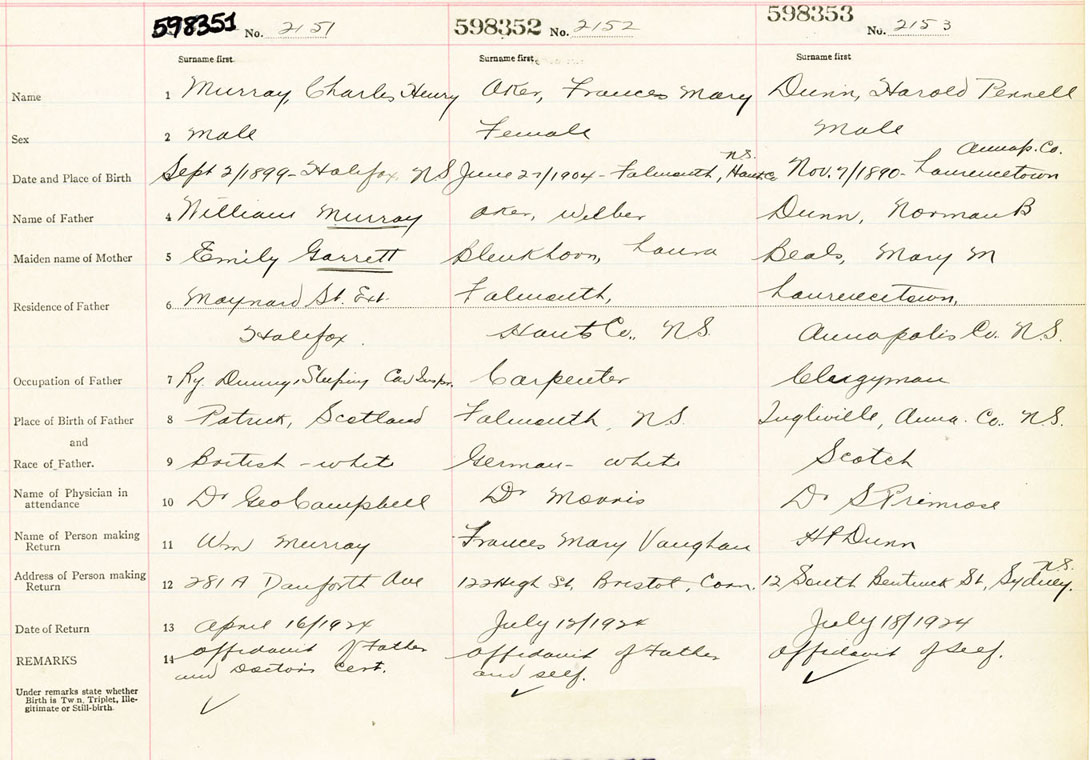 598351 No. 2151 598352 No. 2152 598353 No. 2153
Surname first Surname first Surname first
Name 1 Murray, Charles Henry Oker, Frances Mary Dunn, Harold Pennell
Sex 2 Male Female Male
N.S. Annap. Co.
Date and Place of Birth Sept 2/1899- Halifax, NS June 27/1904- Falmouth, Hants Co Nov. 7/1890- Laurencetown
Name of Father 4 William Murray Oker, Wilber Dunn, Norman B
Maiden name of Mother 5 Emily Garrett Blenkhorn, Laura Beals, Mary M
Residence of Father 6 Maynard St. Ext. Falmouth, Laurencetown,
Halifax. Hants Co., N.S. Annapolis Co. N.S.
Occupation of Father 7 Ry. Dining, Sleeping Car Inspr. Carpenter Clergyman
Place of Birth of Father 8 Patrick, Scotland Falmouth, N.S. Inglisville, Anna. Co. N.S.
and
Race of Father. 9 British - white German - white Scotch
Name of Physician in attendance 10 Dr Geo Campbell Dr Morris Dr S Primrose
Name of Person making Return 11 Wm Murray Frances Mary Vaughan HP Dunn
N.S.
Address of Person making Return 12 281A Danforth Ave 122 High St, Bristol, Conn. 12 South Bentinck St, Sydney.
Date of Return 13 April 16/1924 July 12/1924 July 18/1924
REMARKS 14 Affidavit of Father Affidavit of Father Affidavit of self.
and Doctor's Cert. and self.
Under remarks state whether
Birth is Twin, Triplet, Ille-
gitimate or Still-birth.